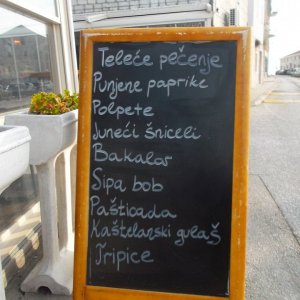 Teleće pečenje
Punjene paprike
Polpete
Juneći šniceli
Bakalar
Sipa bob
Pašticada
Kaštelanski gulaš
Tripice